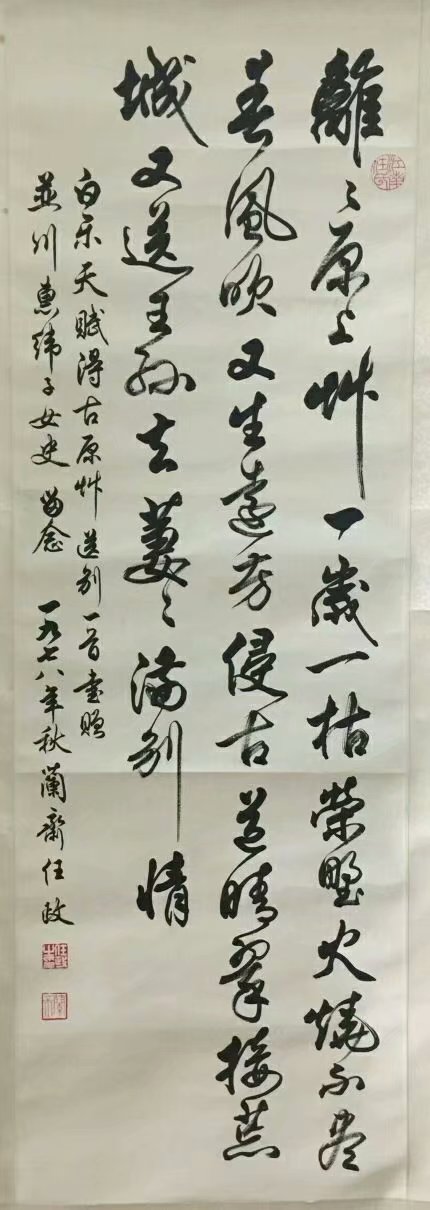 離〻原上艸一歲一枯榮野火燒不盡
春風吹又生遠芳侵古道晴翠接荒
城又送王孫去萋〻滿別情
白乐天賦得古原艸送別一首書贈
並川惠緯子女史 留念 一九七八年秋蘭齋任政